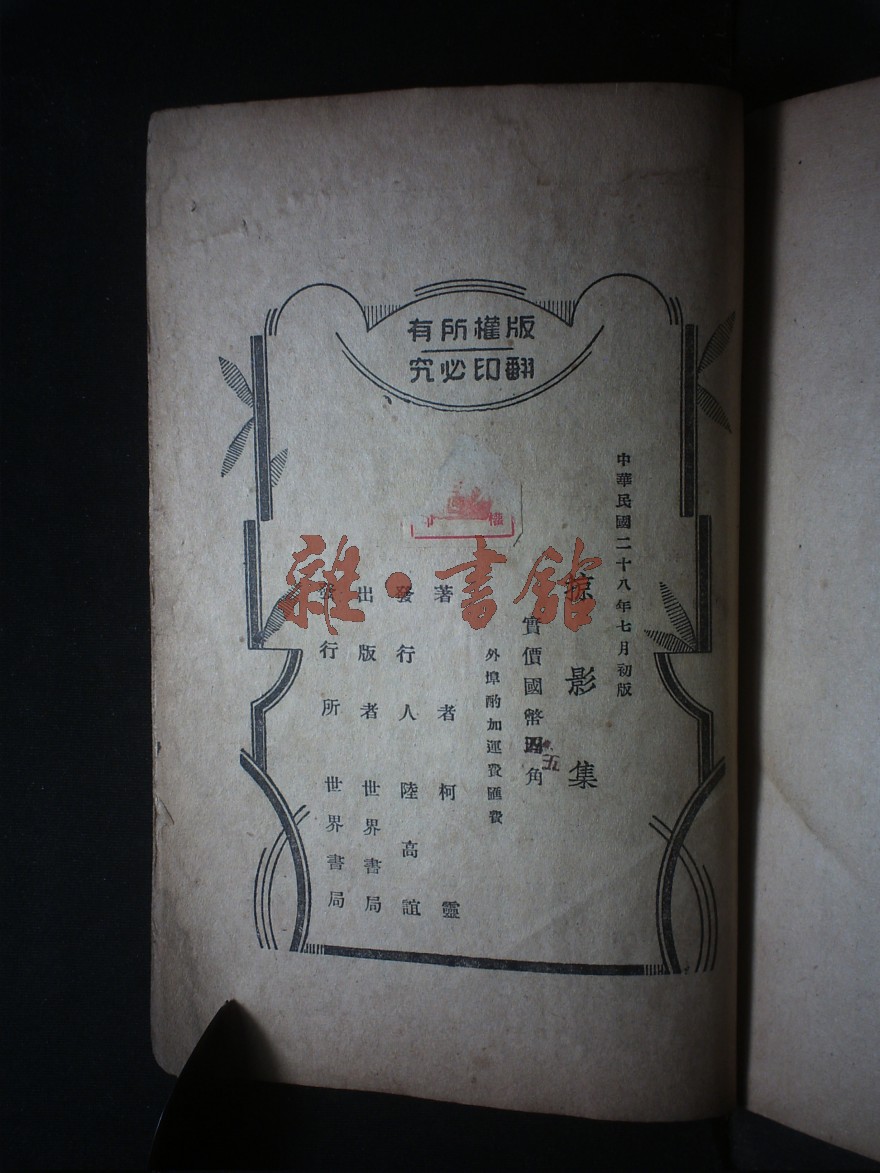 版權所有
翻印必究
中華民國二十八年七月初版
掠影集
實價國幣四角
正
外埠酌加運費匯費
著者 柯靈
發行人 陸高誼
出版者 世界書局
發行所 世界書局
權
雜·書館